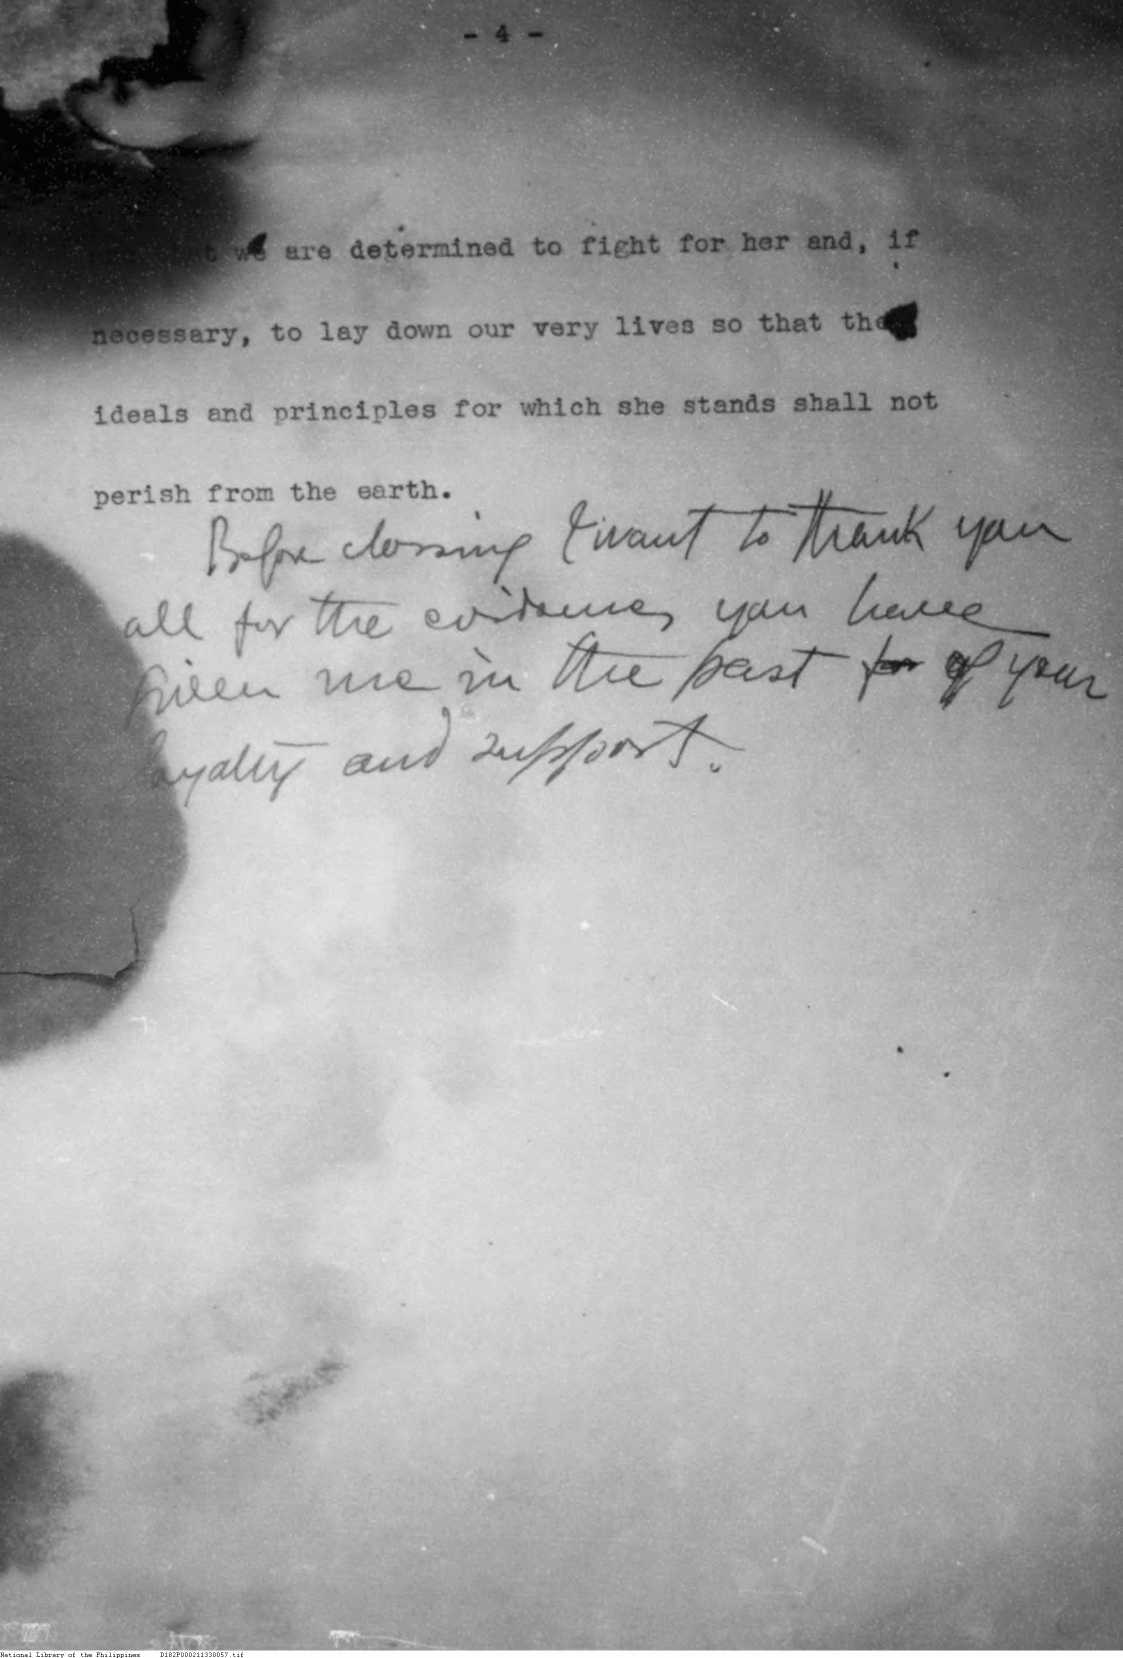 - 4 -
we are determined to fight for her and, if
necessary, to lay down our very lives so that the
ideals and principles for which she stands shall not
perish from the earth.
Before closing I want to thank you
all for the evidences you have
given me in the past for of your
loyalty and support.
National Library of the Philippines D182P000211338057.tif